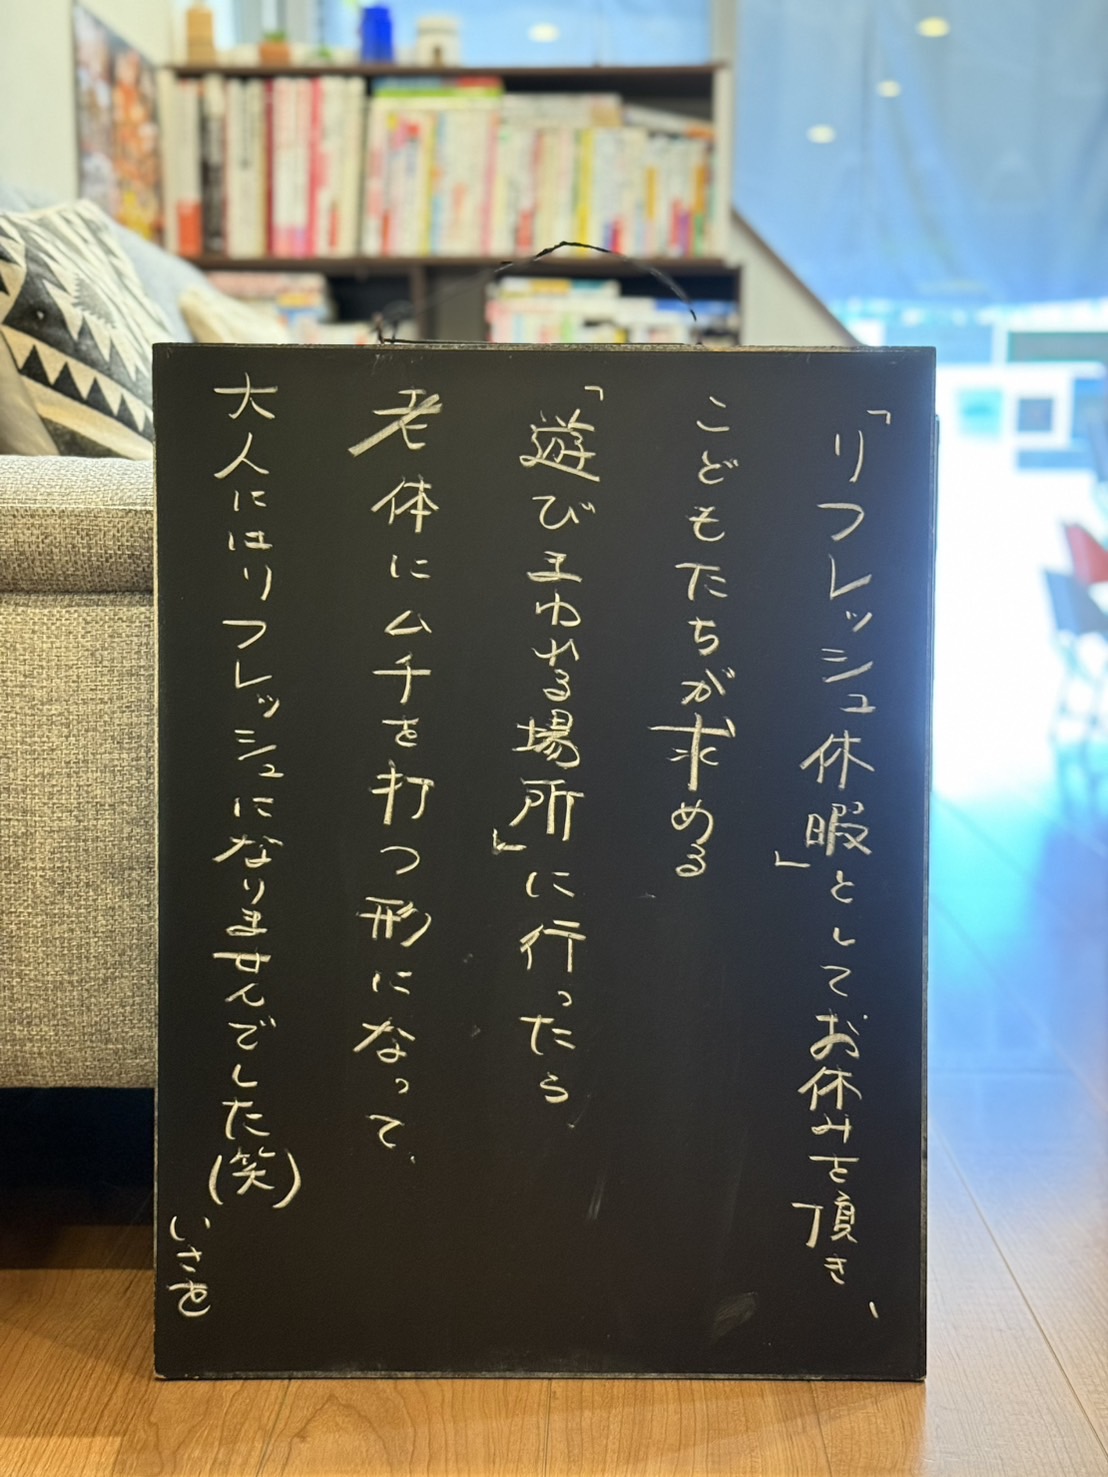 「リフレッシュ休暇」としてお休みを頂き、
こどもたちが求める
「遊びまわれる場所」に行ったら
老体にムチを打つ形になって、
大人にはリフレッシュになりませんでした(笑)
いさを